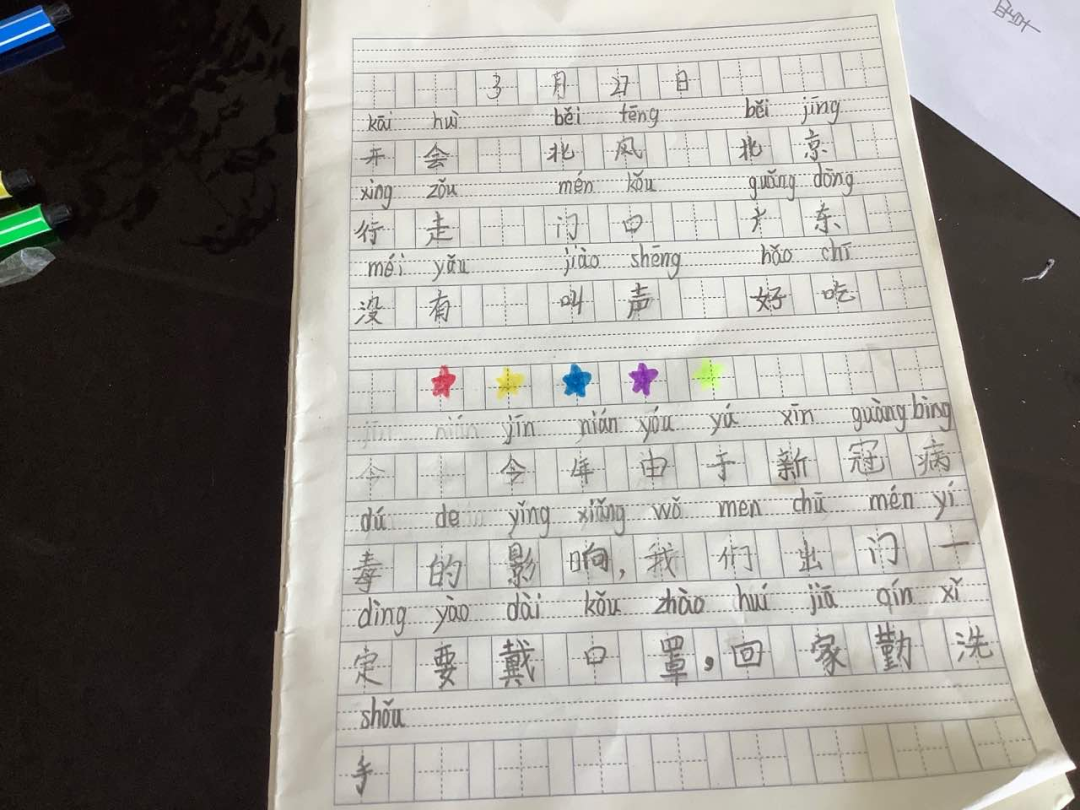 3月27日
kāi huì běi fēng běi jīng
开会 北风 北京
xìng zǒu mén kǒu guǎng dōng
行走 门口 广东
méi yǎu jiào shēng hǎo chī
没有 叫声 好吃
jīn nián jīn nián yóu yá xīn guàng bìng
今 今年由于新冠病
dú de yǐng xiǎng wǒ men chū mén yí
毒的影响,我们出门一
dìng yào dài kǒu zhào huí jiā qín xǐ
定要戴口罩,回家勤洗
shǒu
手